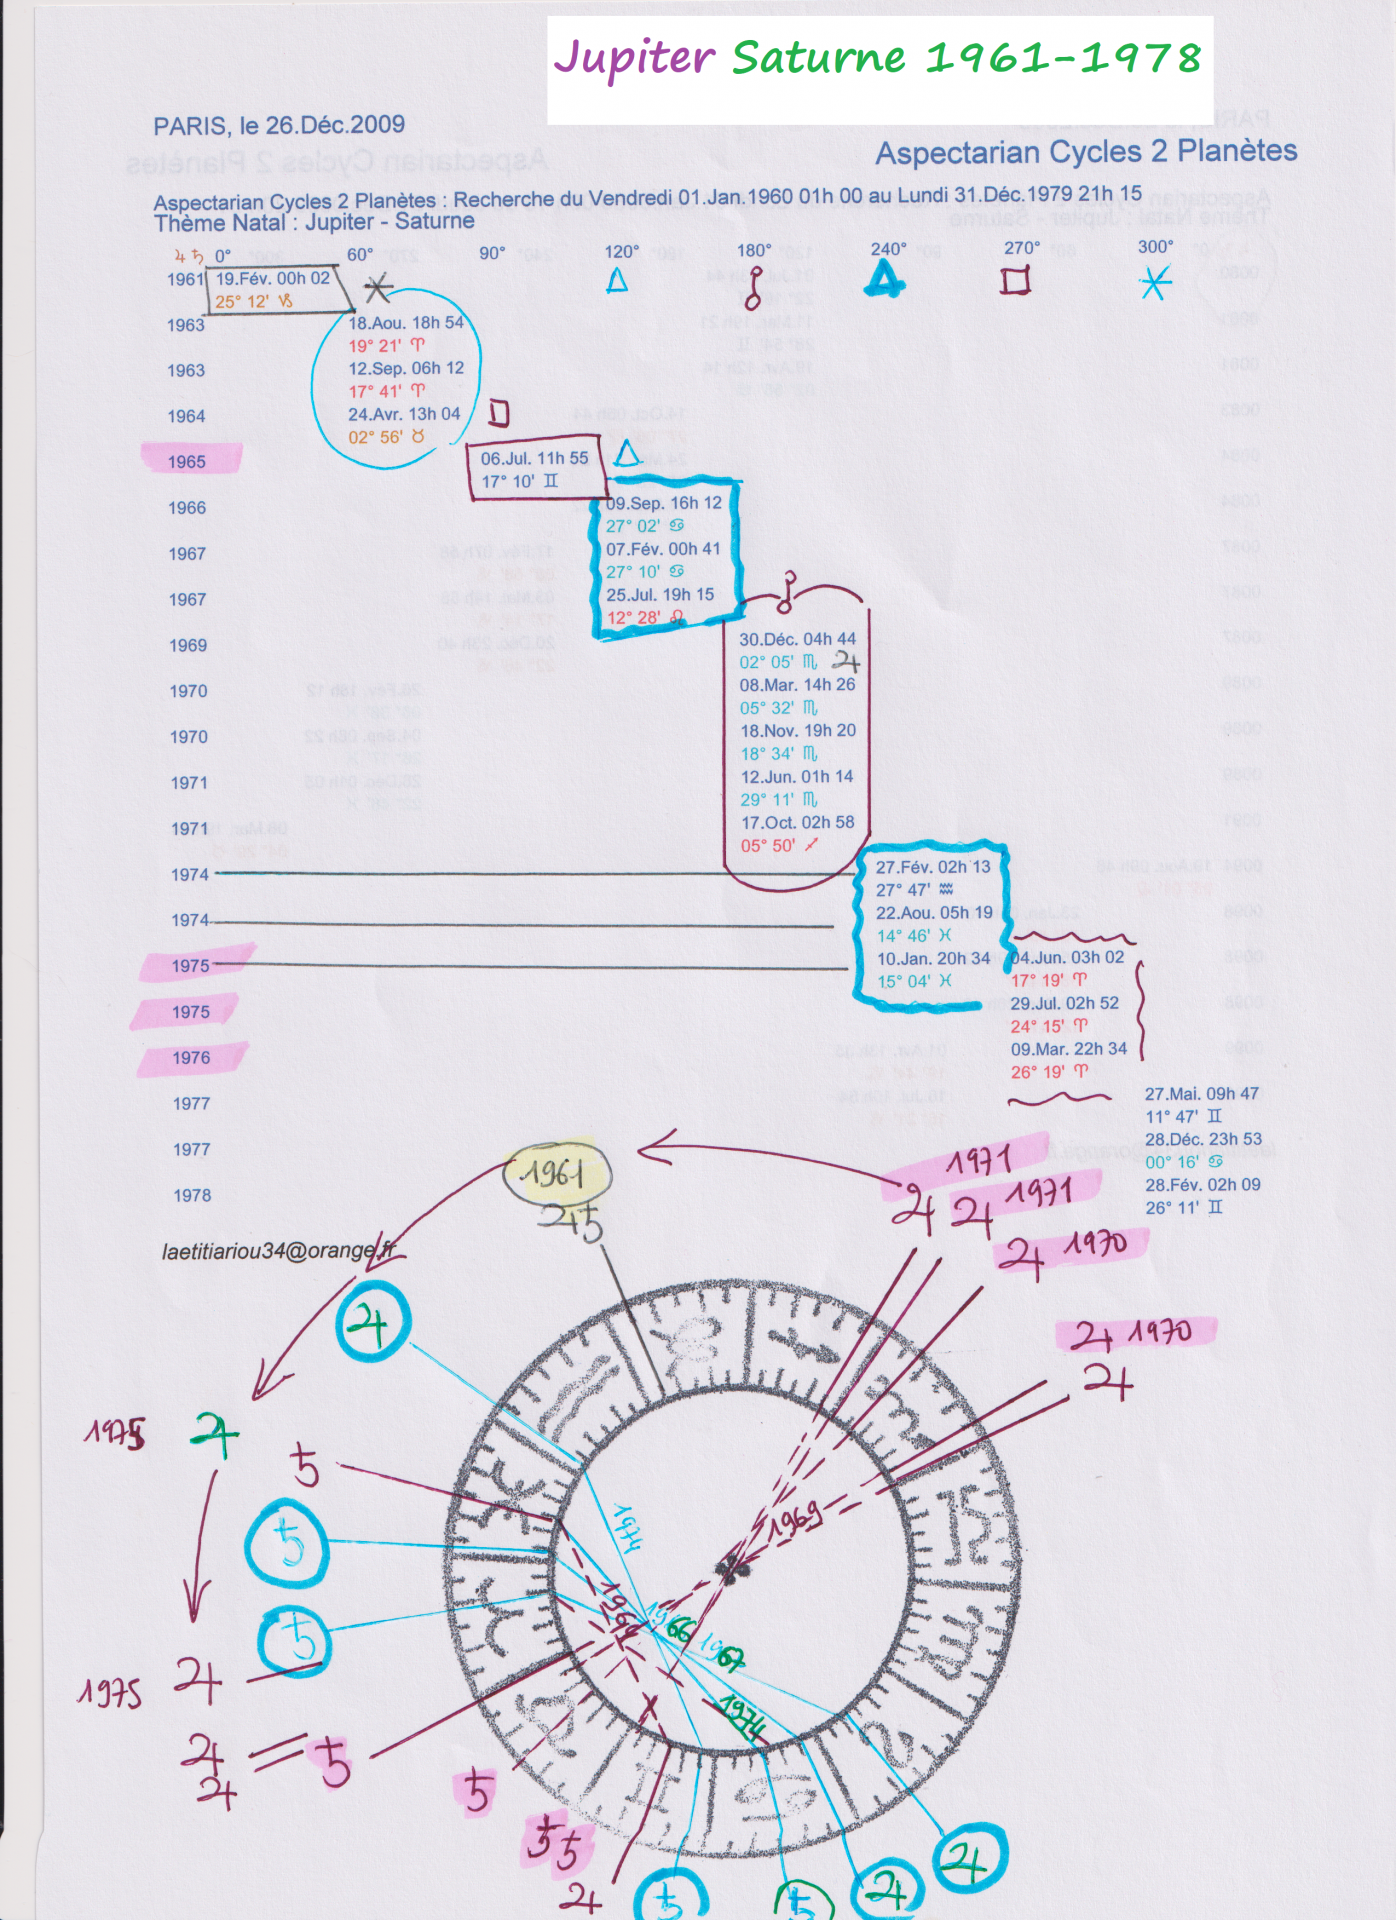 Jupiter Saturne 1961-1978
PARIS, le 26.Déc.2009
Aspectarian Cycles 2 Planètes
Aspectarian Cycles 2 Planètes : Recherche du Vendredi 01.Jan.1960 01h 00 au Lundi 31.Déc.1979 21h 15
Thème Natal : Jupiter - Saturne
♃ ♄ 0° 60° 90° 120° 180° 240° 270° 300°
1961 19.Fév. 00h 02
25° 12' ♑
1963 18.Aou. 18h 54
19° 21' ♈
1963 12.Sep. 06h 12
17° 41' ♈
1964 24.Avr. 13h 04
02° 56' ♉
1965 06.Jul. 11h 55
17° 10' ♊
1966 09.Sep. 16h 12
27° 02' ♋
1967 07.Fév. 00h 41
27° 10' ♋
1967 25.Jul. 19h 15
12° 28' ♌
1969 30.Déc. 04h 44
02° 05' ♏ ♃
1970 08.Mar. 14h 26
05° 32' ♏
1970 18.Nov. 19h 20
18° 34' ♏
1971 12.Jun. 01h 14
29° 11' ♏
1971 17.Oct. 02h 58
05° 50' ♐
1974 27.Fév. 02h 13
27° 47' ♒
1974 22.Aou. 05h 19
14° 46' ♓
1975 10.Jan. 20h 34
15° 04' ♓
1975 04.Jun. 03h 02
17° 19' ♈
1975 29.Jul. 02h 52
24° 15' ♈
1976 09.Mar. 22h 34
26° 19' ♈
1977 27.Mai. 09h 47
11° 47' ♊
1977 28.Déc. 23h 53
00° 16' ♋
1978 28.Fév. 02h 09
26° 11' ♊
laetitiariou34@orange.fr
1961
♃♄
1971
♃ ♃ 1971
♃ 1970
♃ 1970
♃
♃
1975 ♃
♄
♄
♄
1974
1969
66
67
1974
1975 ♃
♃ ♄
♃
♄
♄♄
♃
♄
♄
♃
♃